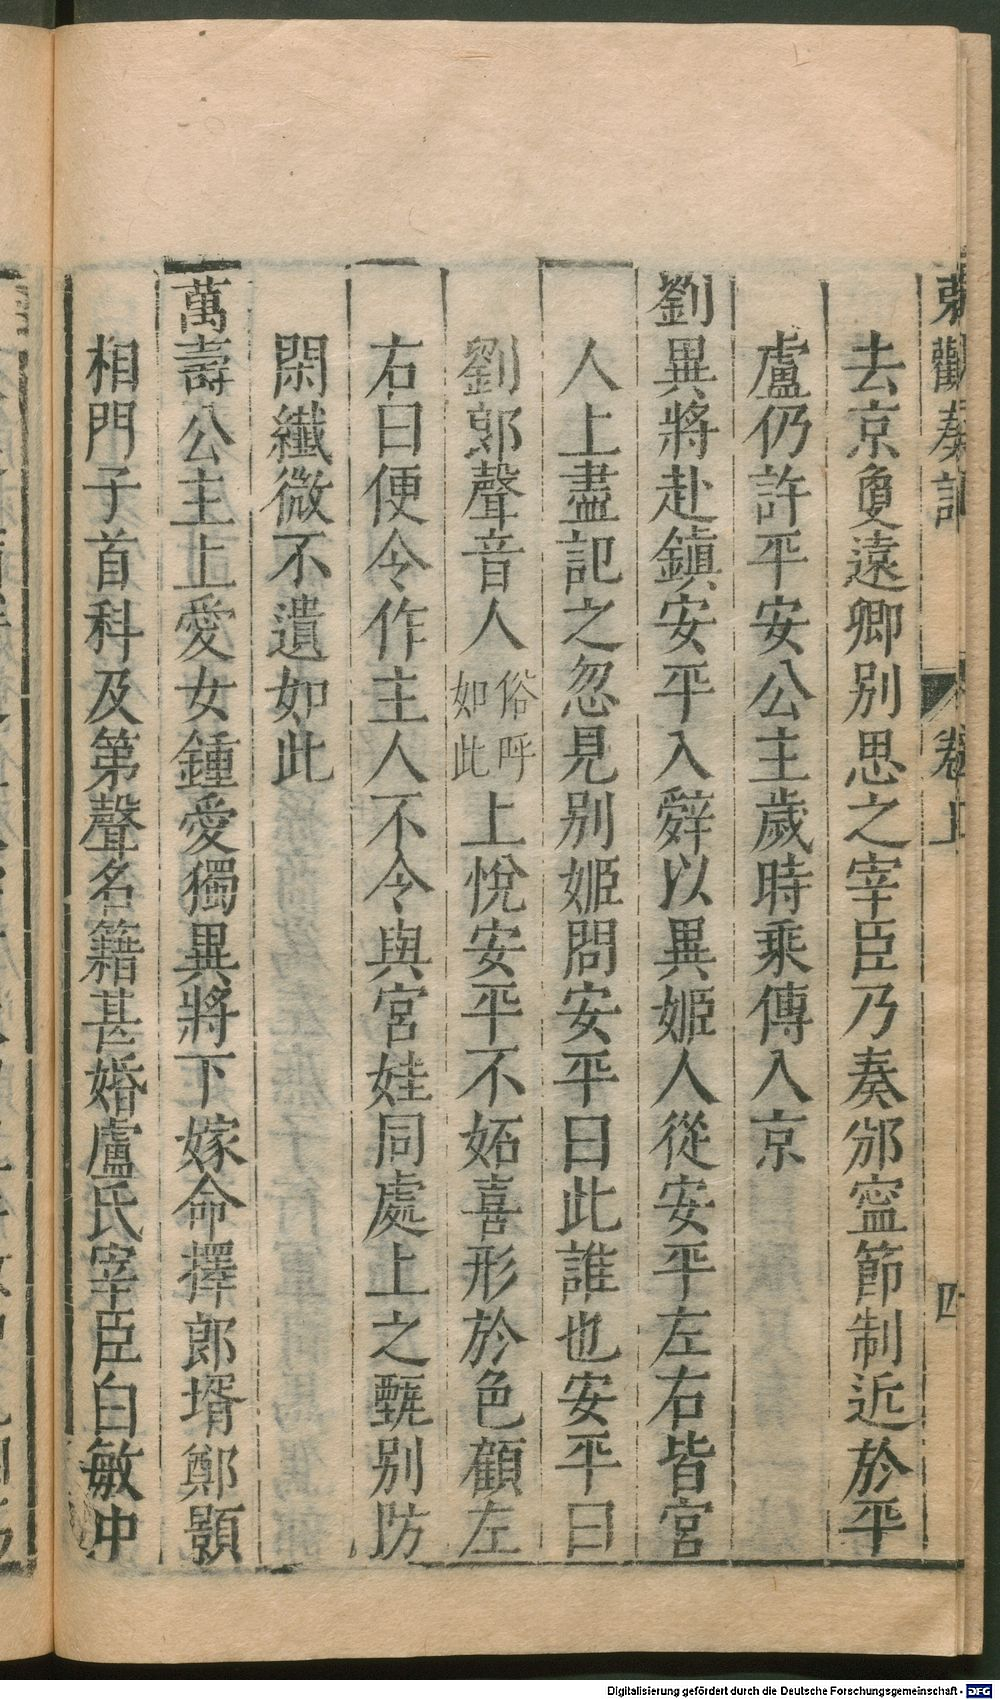 東觀奏記 卷上 四
去京敻遠卿別思之宰臣乃奏邠寜節制近於平
盧仍許平安公主歲時乘傳入京
劉異將赴鎮安平入辭以異姬人從安平左右皆宮
人上盡記之忽見别姬問安平曰此誰也安平曰
劉郎聲音人俗呼如此上悅安平不妬喜形於色顧左
右曰便令作主人不令與宮娃同處上之甄别防
閑纖微不遺如此
萬壽公主上愛女鍾愛獨異將下嫁命擇郎壻鄭顥
相門子首科及第聲名籍甚婚盧氏宰臣白敏中
Digitalisierung gefördert durch die Deutsche Forschungsgemeinschaft - DFG